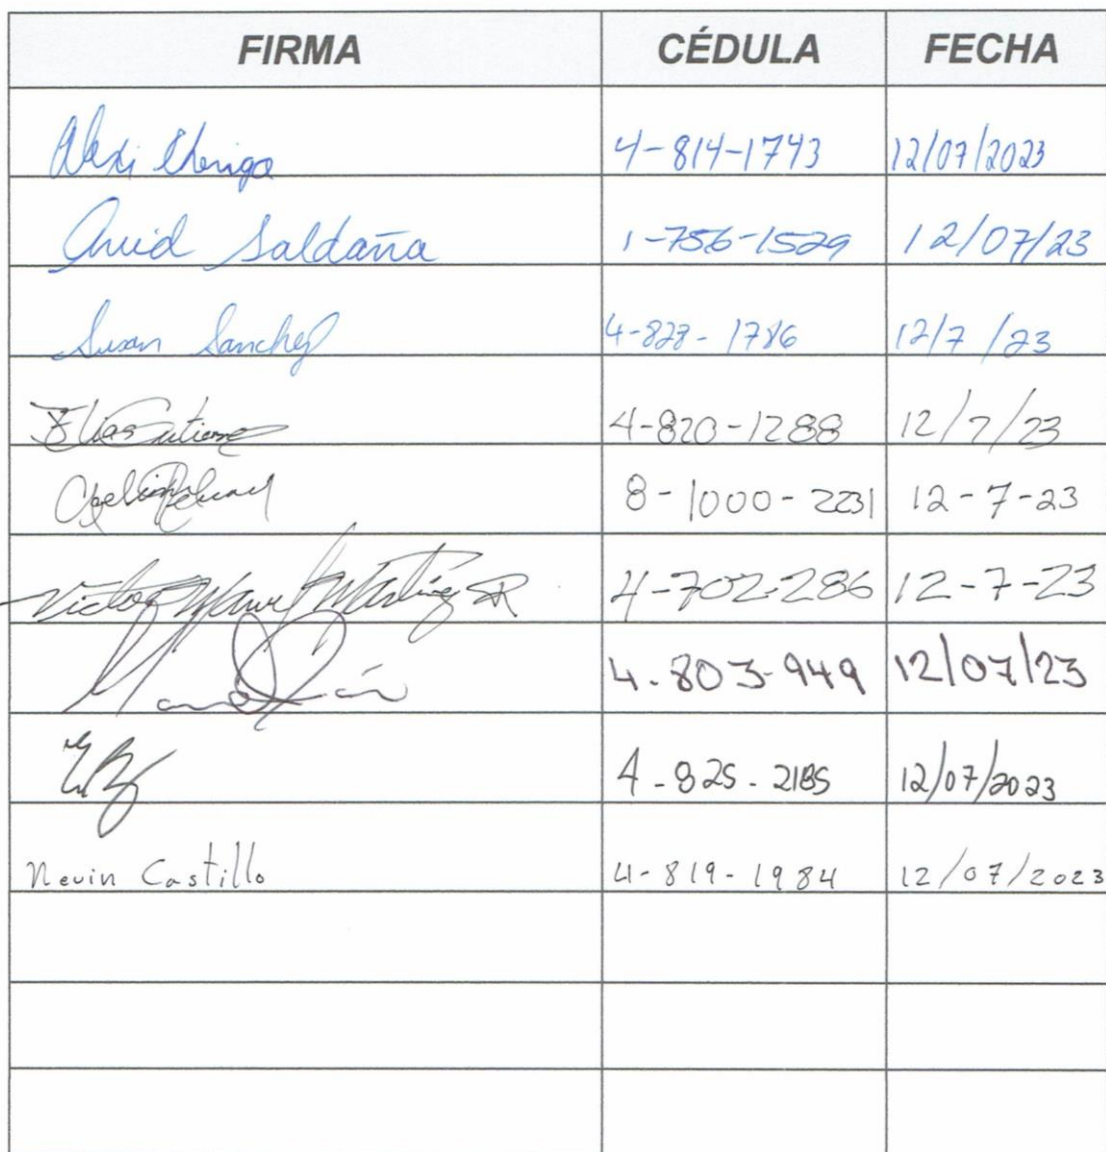 FIRMA CÉDULA FECHA
4-814-1743 12/07/2023
Saldaña 1-756-1529 12/07/23
Susan Sanchez 4-828-1786 12/7/23
Elias Gutierrez 4-820-1288 12/7/23
8-1000-2231 12-7-23
Victor Martínez R 4-702-286 12-7-23
4-803-949 12/07/23
4-825-2185 12/07/2023
Nevin Castillo 4-819-1984 12/07/2023